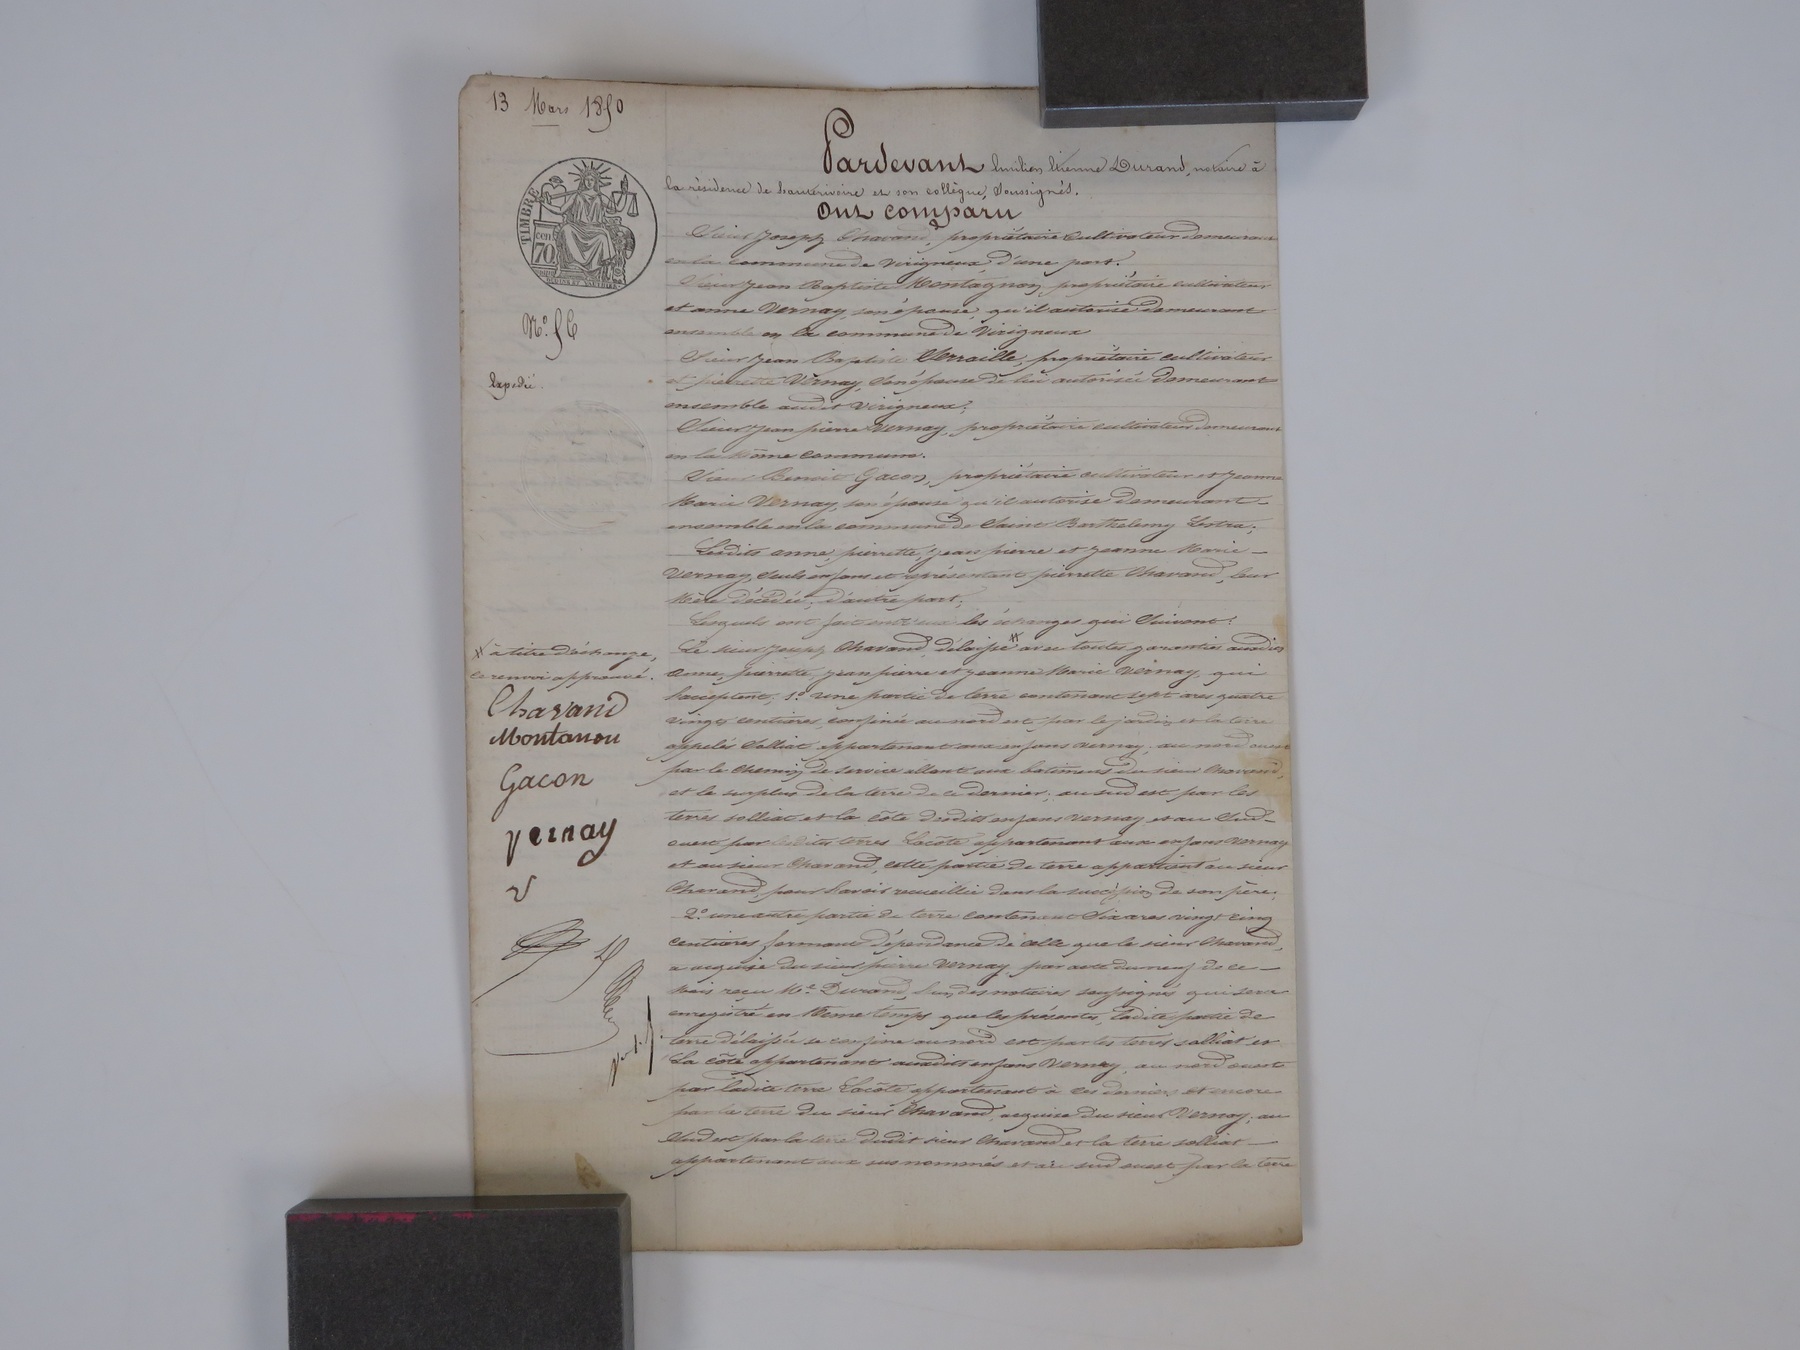 13 Mars 1850
Pardevant Emilien Etienne Durand, notaire à
la résidence de hauterivoire et son collègue, soussignés.
Ont comparu
TIMBRE
cen
70
N.º 56
Expedié.
Sieur Joseph Chavand, propriétaire cultivateur demeurant
en la commune de Virigneux, d'une part.
Sieur Jean Baptiste Montagnon, propriétaire cultivateur
et anne Vernay, son épouse, qu'il autorise demeurant
ensemble en la commune de Virigneux
Sieur Jean Baptiste Verraille, propriétaire cultivateur
et pierrette Vernay, son épouse de lui autorisée demeurant
ensemble audit Virigneux;
Sieur Jean pierre Vernay, propriétaire cultivateur demeurant
en la même commune.
Sieur Benoit Gacon, propriétaire cultivateur et Jeanne
Marie Vernay, son épouse qu'il autorise demeurant
ensemble en la commune de Saint Barthelemy Lestra;
Lesdits anne, pierrette, Jean pierre et Jeanne Marie
Vernay, seuls enfans et représentant pierrette Chavand, leur
Mère décédée; d'autre part;
Lesquels ont fait entr'eux les échanges qui suivent:
Le sieur Joseph Chavand, délaisse # avec toutes garanties auxdits
anne, pierrette, Jean pierre et Jeanne Marie Vernay, qui
l'acceptent, 1.º Une partie de terre contenant sept ares quatre
vingt centiares, confinée au nord est par le jardin et la terre
appelés Solliat appartenant aux enfans Vernay, au nord ouest
par le chemin de service allant aux batimens du sieur Chavand,
et le surplus de la terre de ce dernier; au sud est par les
terres solliat et la côte desdits enfans Vernay et au Sud
ouest par lesdites terres Lacôte appartenant aux enfans Vernay
et au sieur Chavand, cette partie de terre appartient au sieur
Chavand, pour l'avoir recueillie dans la succession de son père;
2.º une autre partie de terre contenant Six ares vingt cinq
centiares formant dépendance de celle que le sieur Chavand,
a acquise du sieur pierre Vernay, par acte du neuf de ce
Mois reçu Me. Durand, l'un des notaires soussignés qui sera
enregistré en Même temps que les présentes, ladite partie de
terre délaissée se confine au nord est par les terres solliat et
La côte appartenant auxdits enfans Vernay, au nord ouest
par ladite terre Lacôte appartenant à ces derniers et encore
par la terre du sieur Chavand, acquise du sieur Vernay; au
Sud est par la terre dudit sieur Chavand et la terre solliat
appartenant aux susnommés et au sud ouest par la terre
# à titre d'échange,
ce renvoi approuvé.
Chavand
Montanon
Gacon
Vernay
V